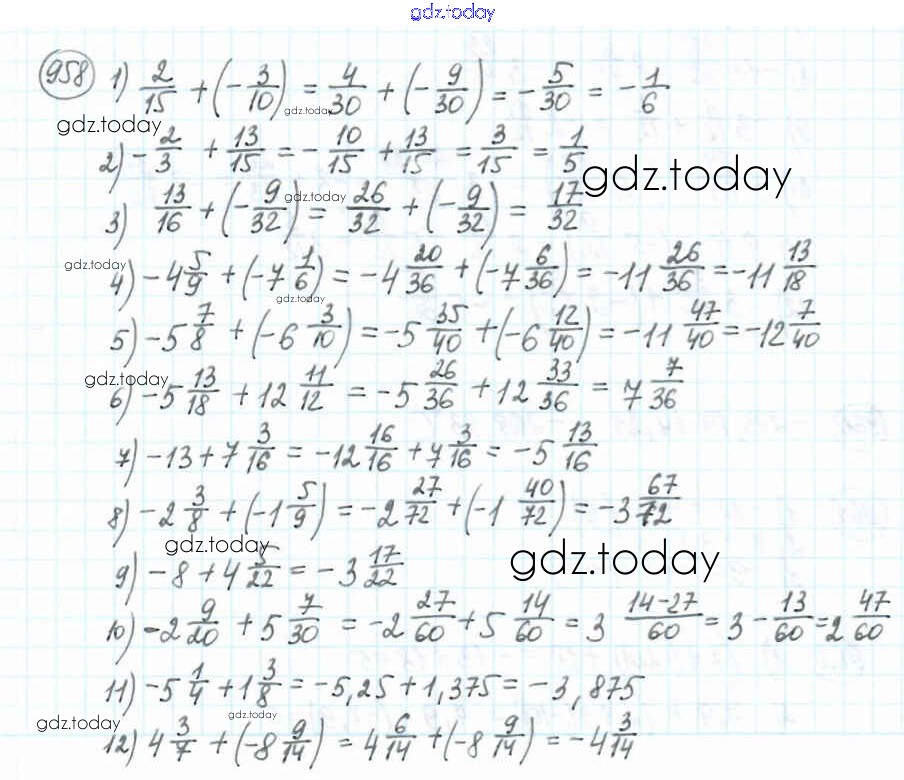 gdz.today
958 1) 2/15 + (-3/10) = 4/30 + (-9/30) = -5/30 = -1/6
gdz.today gdz.today
2) -2/3 + 13/15 = -10/15 + 13/15 = 3/15 = 1/5
gdz.today gdz.today
3) 13/16 + (-9/32) = 26/32 + (-9/32) = 17/32
gdz.today
4) -4 5/9 + (-7 1/6) = -4 20/36 + (-7 6/36) = -11 26/36 = -11 13/18
gdz.today
5) -5 7/8 + (-6 3/10) = -5 35/40 + (-6 12/40) = -11 47/40 = -12 7/40
gdz.today
6) -5 13/18 + 12 11/12 = -5 26/36 + 12 33/36 = 7 7/36
7) -13 + 7 3/16 = -12 16/16 + 7 3/16 = -5 13/16
8) -2 3/8 + (-1 5/9) = -2 27/72 + (-1 40/72) = -3 67/72
gdz.today gdz.today
9) -8 + 4 5/22 = -3 17/22
10) -2 9/20 + 5 7/30 = -2 27/60 + 5 14/60 = 3 14-27/60 = 3 - 13/60 = 2 47/60
11) -5 1/4 + 1 3/8 = -5,25 + 1,375 = -3,875
gdz.today gdz.today
12) 4 3/7 + (-8 9/14) = 4 6/14 + (-8 9/14) = -4 3/14